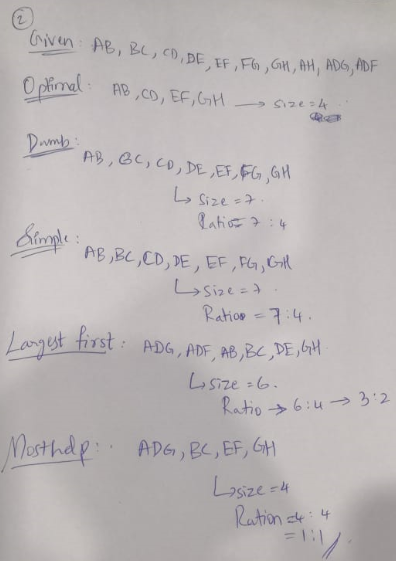 ②
Given: AB, BC, CD, DE, EF, FG, GH, AH, ADG, ADF
Optimal: AB, CD, EF, GH → size = 4
Dumb:
AB, BC, CD, DE, EF, FG, GH
↳ Size = 7.
Ratio = 7 : 4
Simple:
AB, BC, CD, DE, EF, FG, GH
↳ Size = 7
Ratio = 7:4.
Largest first: ADG, ADF, AB, BC, DE, GH.
↳ size = 6.
Ratio → 6:4 → 3:2
Most help: ADG, BC, EF, GH
↳ size = 4
Ration = 4 : 4
= 1:1 //